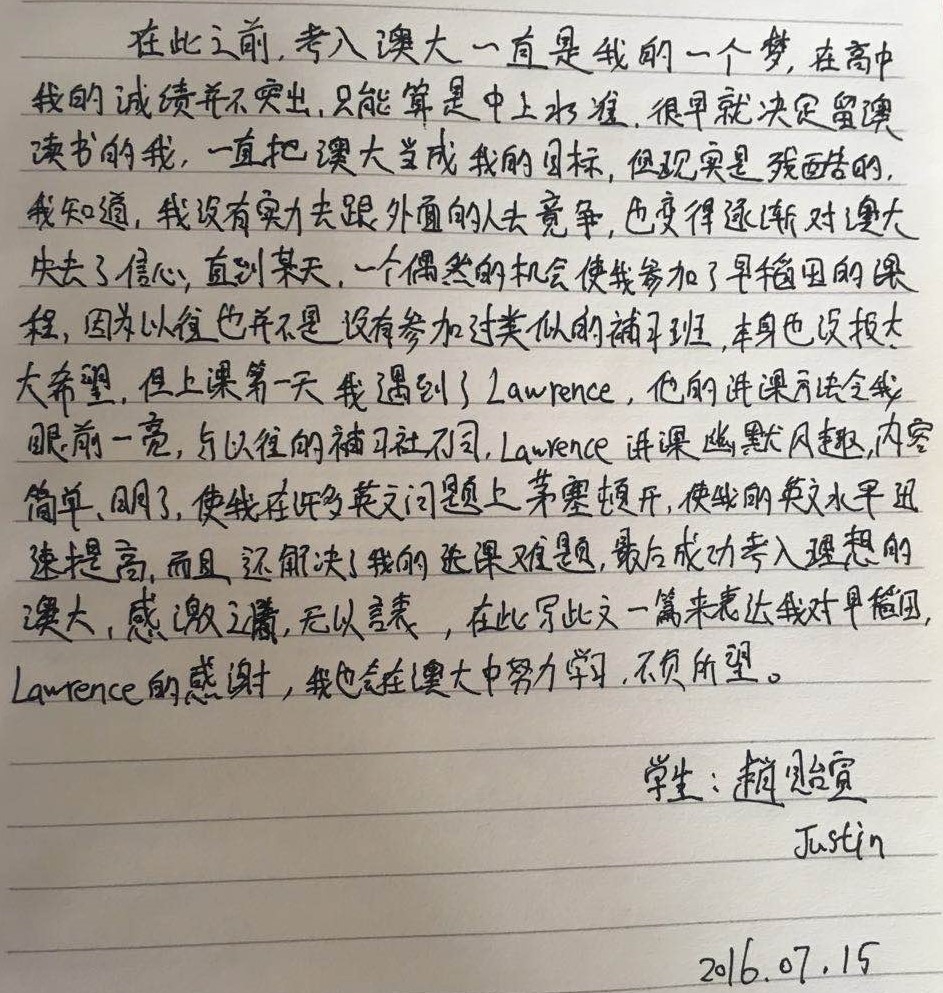 在此之前,考入澳大一直是我的一个梦,在高中
我的诚绩并不突出,只能算是中上水准,很早就决定留澳
读书的我,一直把澳大当成我的目标,但现实是残酷的,
我知道,我没有实力去跟外面的人去竞争,也变得逐渐对澳大
失去了信心,直到某天,一个偶然的机会使我参加了早稻田的课
程,因为以往也并不是没有参加过类似的補习班,本身也没报太
大希望,但上课第一天我遇到了Lawrence,他的讲课方法令我
眼前一亮,与以往的補习社不同,Lawrence讲课幽默风趣,内容
简单、明了,使我在许多英文问题上茅塞顿开,使我的英文水平迅
速提高,而且还解决了我的选课难题,最后成功考入理想的
澳大,感激之,无以言表,在此写此文一篇来表达我对早稻田,
Lawrence的感谢,我也会在澳大中努力学习,不负所望。
学生:趙贻宣
Justin
2016.07.15